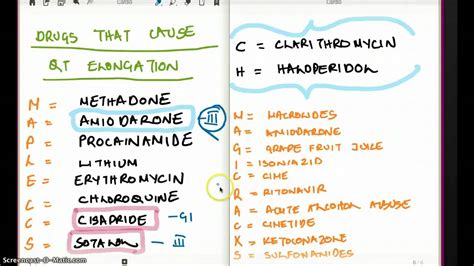 DRUGS THAT CAUSE
QT ELONGATION
M = METHADONE
A = AMIODARONE - III
P = PROCAINANIDE
L = LITHIUM
E = ERYTHROMYCIN
C = CHLOROQUINE
C = CISAPRIDE - GI
S = SOTALOL - III
C = CLARITHROMYCIN
H = HALOPERIDOL
M = MACROLIDES
A = AMIODARONE
G = GRAPE FRUIT JUICE
I = ISONIAZID
C = CIME
R = RITONAVIR
A = ACUTE ALCOHOL ABUSE
C = CIMETIDE
K = KETOCONAZONE
S = SULFONAMIDES
Screencast-O-Matic.com